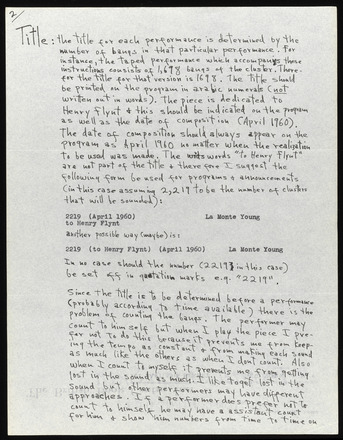 2
Title: the title for each performance is determined by the
number of bangs in that particular performance. For
instance, the taped performance which accompanys these
instructions consists of 1,698 bangs of the cluster. There-
fore the title for that version is 1698. The title should
be printed on the program in arabic numerals (not
written out in words). The piece is dedicated to
Henry Flynt & this should be indicated on the program
as well as the date of composition (April 1960).
The date of composition should always appear on the
program as April 1960 no matter when the realization
to be used was made. The words "to Henry Flynt"
are not part of the title & therefore I suggest the
following form be used for programs & announcements
(in this case assuming 2,219 to be the number of clusters
that will be sounded):
2219 (April 1960) La Monte Young
to Henry Flynt
another possible way (maybe) is:
2219 (to Henry Flynt) (April 1960) La Monte Young
In no case should the number (2219 in this case)
be set off in quotation marks e.g. "2219".
Since the title is to be determined before a performance
(probably according to time available) there is the
problem of counting the bangs. The performer may
count to himself but when I play the piece I pre-
fer not to do this because it prevents me from keep-
ing the tempo as constant & from making each sound
as much like the others as when I don't count. Also
when I count to myself it prevents me from getting
lost in the sound as much. I like to get lost in the
sound but other performers may have different
approaches. If a performer does prefer not to
count to himself he may have a assistant count
for him & show him numbers from time to time on